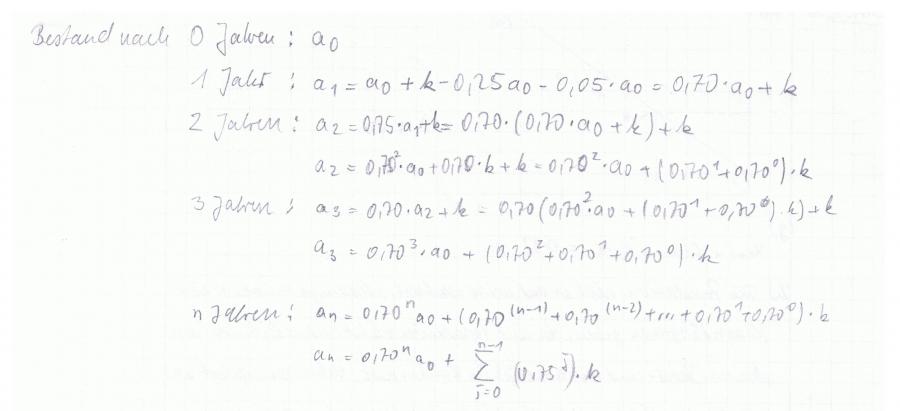 Bestand nach 0 Jahren : a₀
1 Jahr : a₁ = a₀ + k - 0,25a₀ - 0,05·a₀ = 0,70·a₀ + k
2 Jahren : a₂ = 0,75·a₁+k = 0,70·(0,70·a₀ + k) + k
a₂ = 0,70²·a₀ + 0,70·k + k = 0,70²·a₀ + (0,70¹ + 0,70⁰)·k
3 Jahren : a₃ = 0,70·a₂ + k = 0,70(0,70²·a₀ + (0,70¹ + 0,70⁰)·k) + k
a₃ = 0,70³·a₀ + (0,70² + 0,70¹ + 0,70⁰)·k
n Jahren : aₙ = 0,70ⁿa₀ + (0,70⁽ⁿ⁻¹⁾ + 0,70⁽ⁿ⁻²⁾ + ... + 0,70¹ + 0,70⁰)·k
aₙ = 0,70ⁿa₀ + ∑ⁿ⁻¹ⱼ₌₀ (0,75ʲ)·k